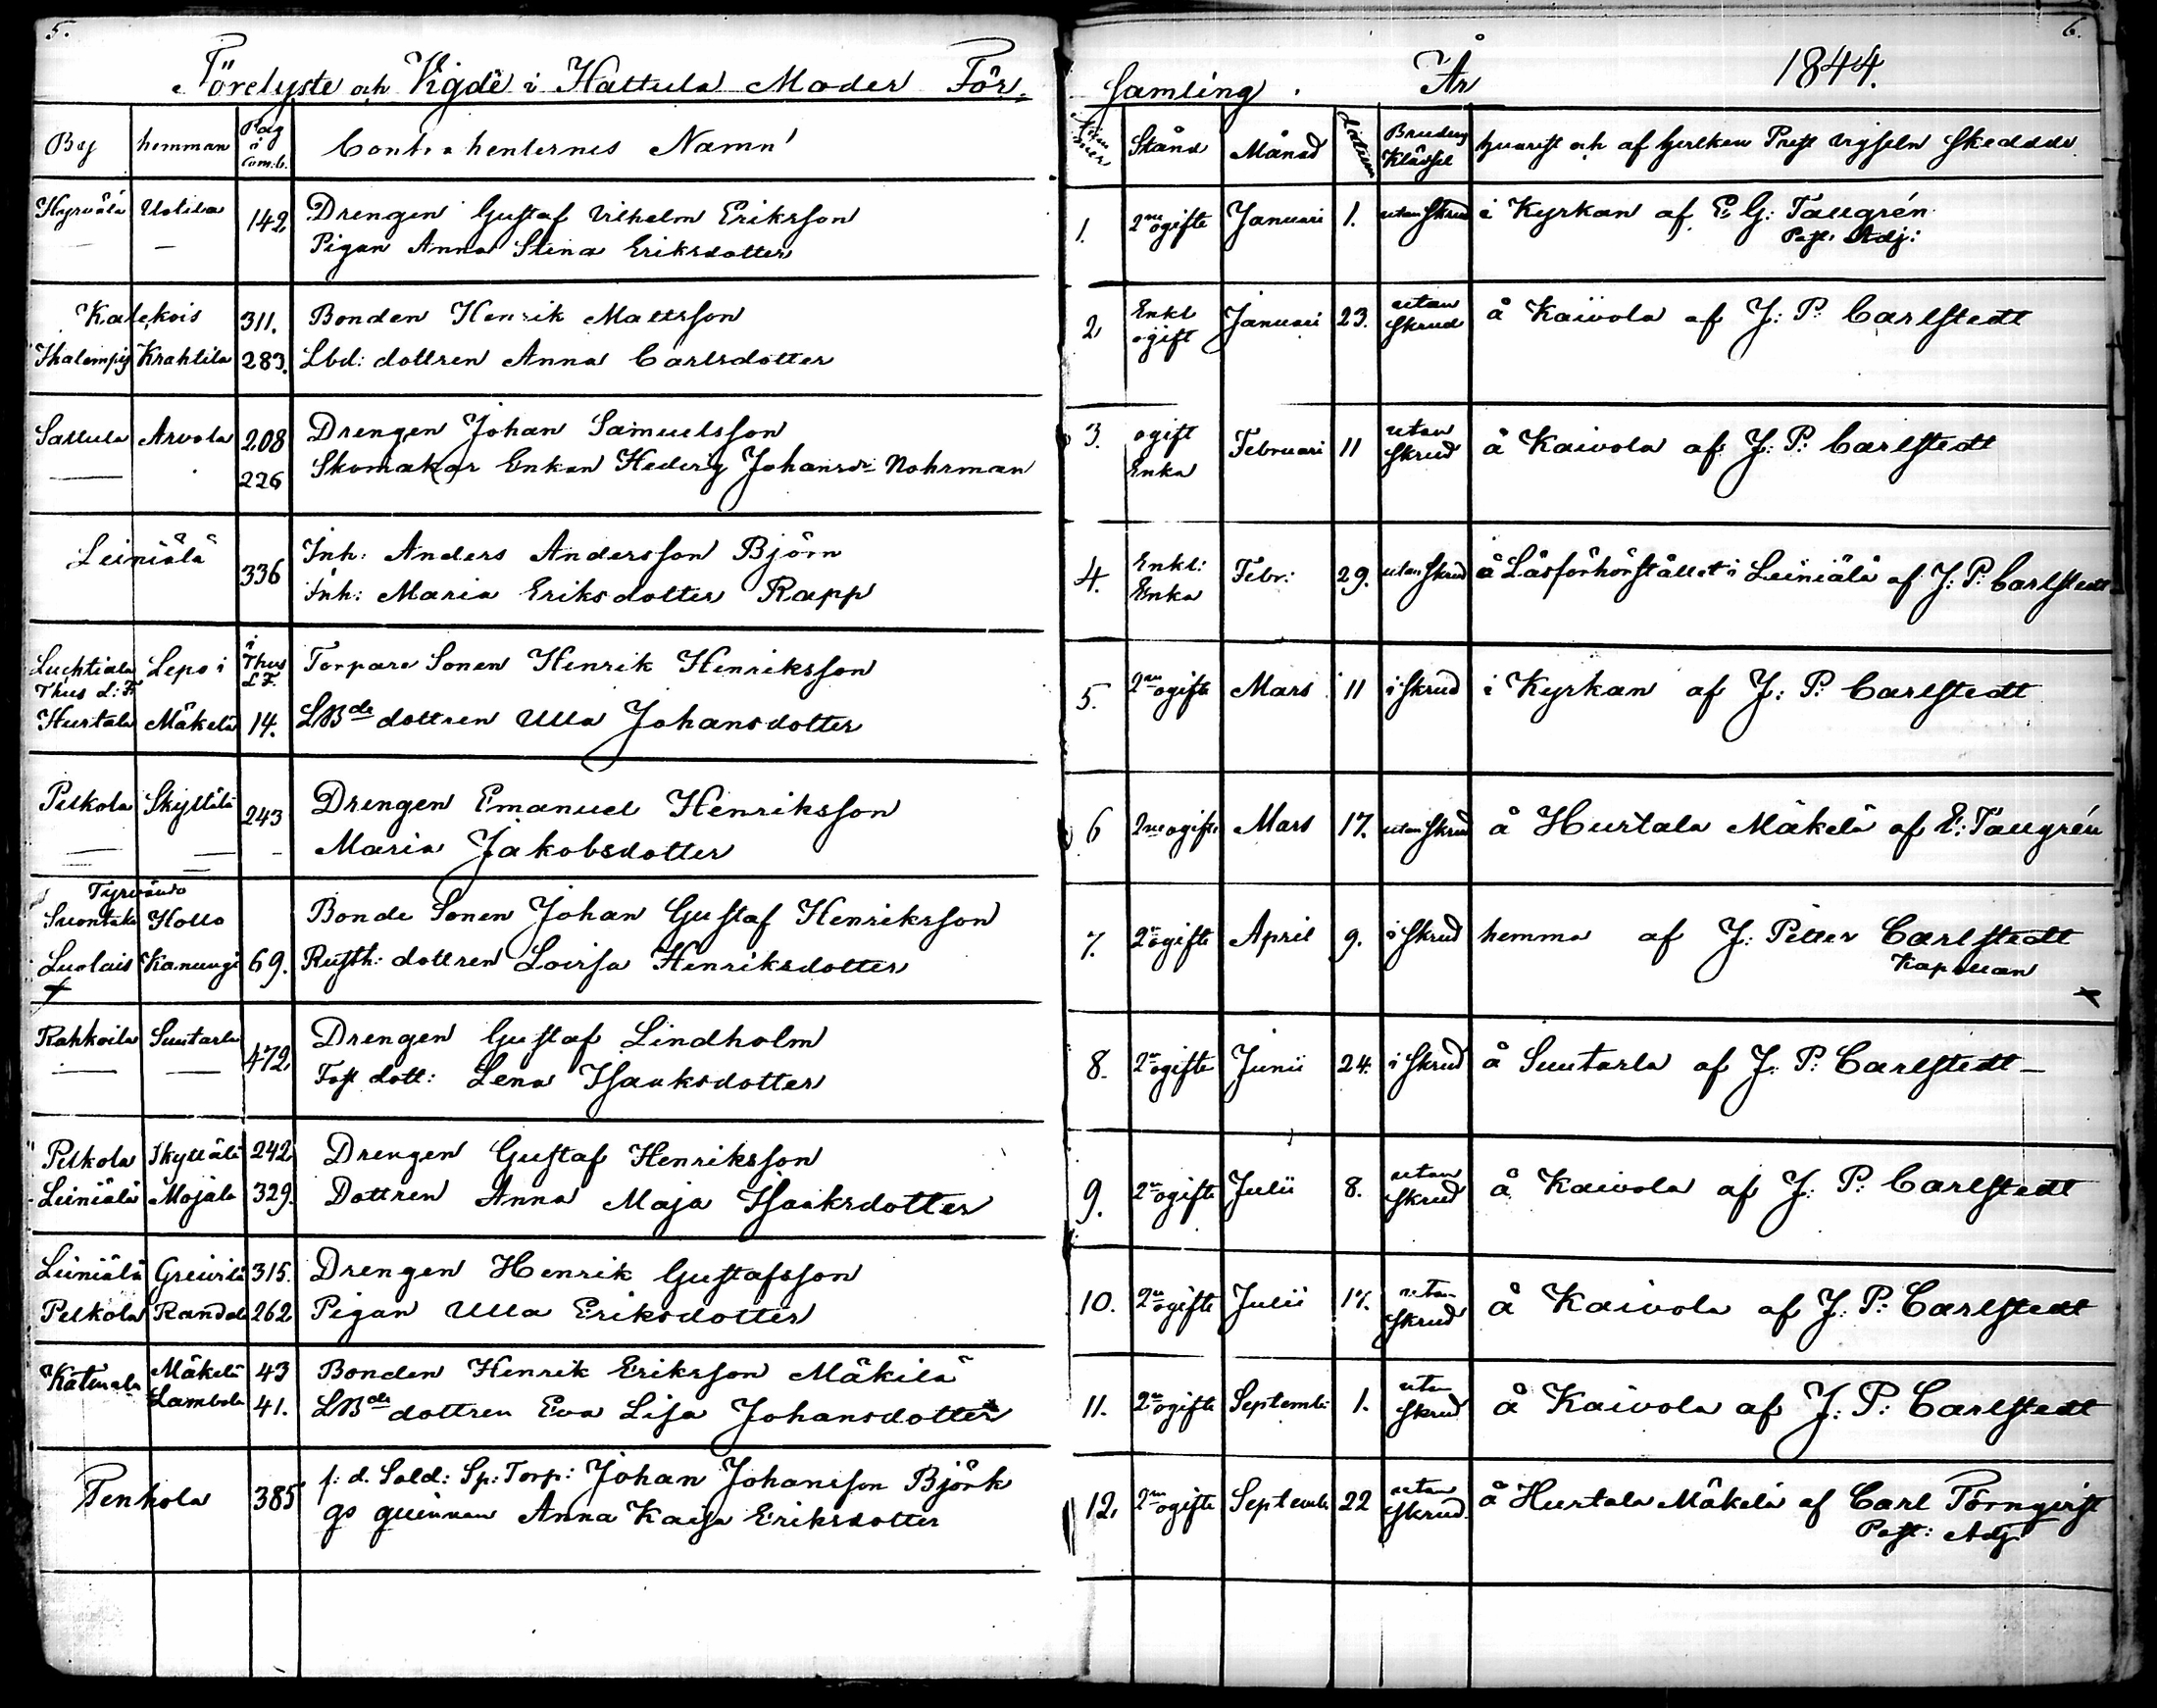 5.
Förelyste och Vigde i Hattula Moder För=
By hemman Pag å Com.b. Contrahenternes Namn
Hyrvälä Uotila 142 Drengen Gustaf Vilhelm Eriksson
— — Pigan Anna Stina Eriksdotter
Kalekois 311. Bonden Henrik Mattsson
Ihalempij Krahtila 283. Lbd: dottren Anna Carlsdotter
Sattula Arvola 208 Drengen Johan Samuelsson
— 226 Skomakar Enkan Hedvig Johansdr Nohrman
Leiniälä 336 Inh: Anders Andersson Björn
Inh: Maria Eriksdotter Rapp
Luchtiala Lepo i i Thus L.F. Torpare Sonen Henrik Henriksson
Thus L:F.
Hurtala Mäkelä 14. LBde dottren Ulla Johansdotter
Pelkola Skyttälä 243 Drengen Emanuel Henriksson
— — - Maria Jakobsdotter
Tyrvändö
Suontaka Hollo Bonde Sonen Johan Gustaf Henriksson
Luolais Kanungi 69. Rusth: dottren Lovisa Henriksdotter
Rahkoila Suutarla 472 Drengen Gustaf Lindholm
— — dott: Lena Isaaksdotter
Pelkola Skyttälä 242 Drengen Gustaf Henriksson
Leiniälä Mojala 329. Dottren Anna Maja Isaaksdotter
Leiniälä Greivilä 315. Drengen Henrik Gustafsson
Pelkola Randala 262 Pigan Ulla Eriksdotter
Katinala Mäkelä 43 Bonden Henrik Eriksson Mäkilä
Lambola 41. LBde dottren Eva Lisa Johansdotter
Tenhola 385 f: d. Sold: Sp: Torp: Johan Johansson Björk
qs quinnan Anna Kaisa Eriksdotter
6.
samling. År 1844.
Nummer Stånd Månad Datum Brudens Klädsel hvarest och af hvilken Prest vigseln skedde
1. 2ne ogifte Januari 1. utan skrud i Kyrkan af E. G: Taugrén
Past: Adj:
2 Enkl ogift Januari 23. utan skrud å Kaivola af J: P: Carlstedt
3. ogift Enka Februari 11 utan skrud å Kaivola af J: P: Carlstedt
4. Enkl: Enka Febr: 29. utan skrud å Läsförhörstället i Leiniälä af J: P: Carlstedt
5. 2ne ogifte Mars 11 i skrud i Kyrkan af J: P: Carlstedt
6 2ne ogifte Mars 17. utan skrud å Hurtala Mäkelä af E: Taugrén
7. 2ne ogifte April 9. i skrud hemma af J: Petter Carlstedt
Kapellan
8. 2ne ogifte Junii 24. i skrud å Suutarla af J: P: Carlstedt —
9. 2ne ogifte Julii 8. utan skrud å Kaivola af J: P: Carlstedt
10. 2ne ogifte Julii 17. utan skrud å Kaivola af J: P: Carlstedt
11. 2ne ogifte Septemb: 1. utan skrud å Kaivola af J: P: Carlstedt
12. 2ne ogifte Septemb: 22 utan skrud å Hurtala Mäkelä af Carl Törnqvist
Past: Adj: